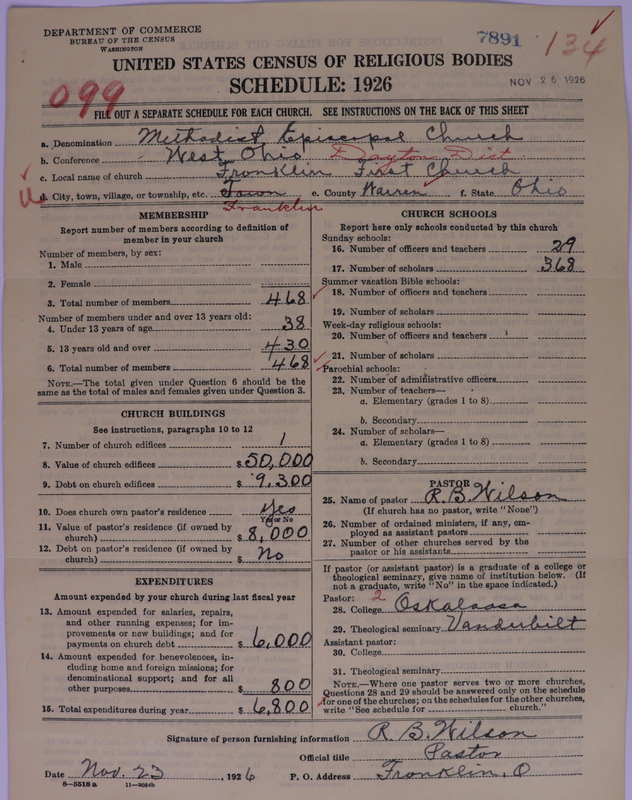 DEPARTMENT OF COMMERCE
BUREAU OF THE CENSUS
WASHINGTON
7891
134
UNITED STATES CENSUS OF RELIGIOUS BODIES
SCHEDULE: 1926
NOV 26 1926
099
FILL OUT A SEPARATE SCHEDULE FOR EACH CHURCH. SEE INSTRUCTIONS ON THE BACK OF THIS SHEET
a. Denomination Methodist Episcopal Church
b. Conference West Ohio Dayton Dist
c. Local name of church Franklin First Church
d. City, town, village, or township, etc. Town e. County Warren f. State Ohio
Franklin
MEMBERSHIP
Report number of members according to definition of
member in your church
Number of members, by sex:
1. Male
2. Female
3. Total number of members 468
Number of members under and over 13 years old:
4. Under 13 years of age 38
5. 13 years old and over 430
6. Total number of members 468
NOTE.—The total given under Question 6 should be
same as the total of males and females given under Question 3.
CHURCH BUILDINGS
See instructions, paragraphs 10 to 12
7. Number of church edifices 1
8. Value of church edifices $50,000
9. Debt on church edifices $9,300
10. Does church own pastor's residence Yes
Yes or No
11. Value of pastor's residence (if owned by
church) $8,000
12. Debt on pastor's residence (if owned by
church) $ No
EXPENDITURES
Amount expended by your church during last fiscal year
13. Amount expended for salaries, repairs,
and other running expenses; for im-
provements or new buildings; and for
payments on church debt $6,000
14. Amount expended for benevolences, in-
cluding home and foreign missions; for
denominational support; and for all
other purposes $800
15. Total expenditures during year $6,800
CHURCH SCHOOLS
Report here only schools conducted by this church
Sunday schools:
16. Number of officers and teachers 29
17. Number of scholars 368
Summer vacation Bible schools:
18. Number of officers and teachers
19. Number of scholars
Week-day religious schools:
20. Number of officers and teachers
21. Number of scholars
Parochial schools:
22. Number of administrative officers
23. Number of teachers—
a. Elementary (grades 1 to 8)
b. Secondary
24. Number of scholars—
a. Elementary (grades 1 to 8)
b. Secondary
PASTOR
25. Name of pastor R. B. Wilson
(If church has no pastor, write "None")
26. Number of ordained ministers, if any, em-
ployed as assistant pastors
27. Number of other churches served by the
pastor or his assistants
If pastor (or assistant pastor) is a graduate of a college or
theological seminary, give name of institution below. (If
not a graduate, write "No" in the space indicated.)
Pastor: 2
28. College Oskaloosa
29. Theological seminary Vanderbilt
Assistant pastor:
30. College
31. Theological seminary
NOTE.—Where one pastor serves two or more churches,
Questions 28 and 29 should be answered only on the schedule
for one of the churches; on the schedules for the other churches,
write "See schedule for church."
Signature of person furnishing information R. B. Wilson
Official title Pastor
Date Nov. 23, 1926 P. O. Address Franklin, O
8—5518a 11—9054b